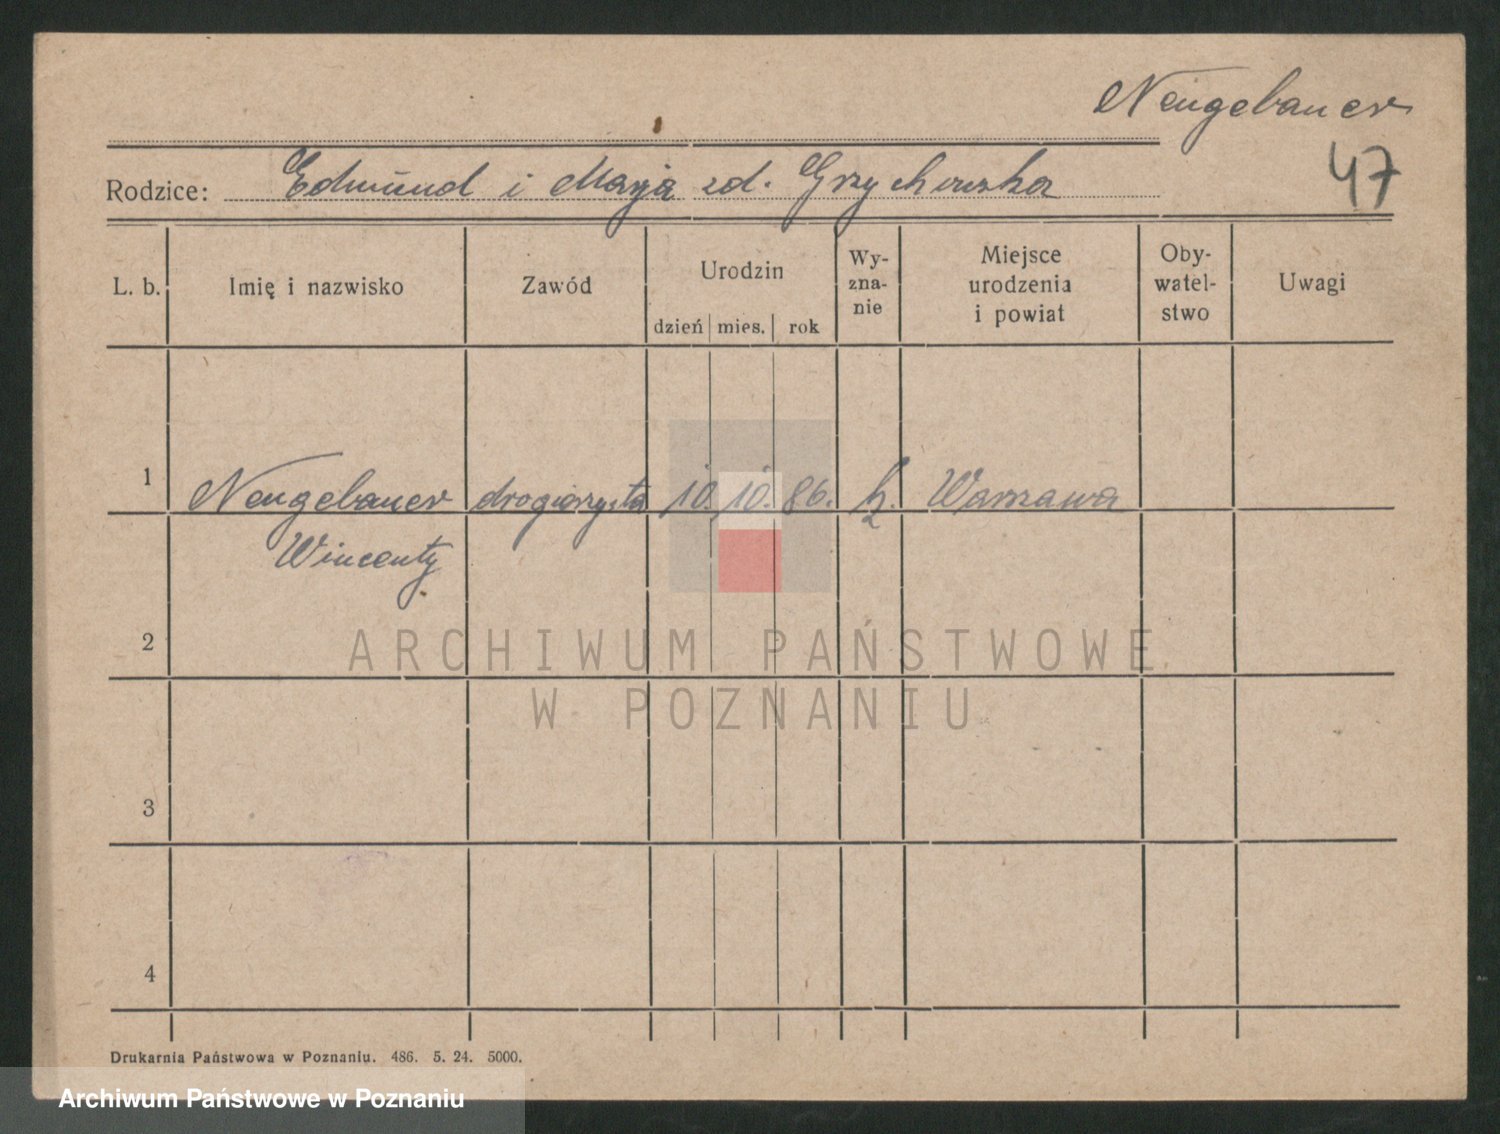 Neugebauer
47
Rodzice: Edmund i Marja zd. Grzychowska
L. b. Imię i nazwisko Zawód Urodzin dzień mies. rok Wy- zna- nie Miejsce urodzenia i powiat Oby- watel- stwo Uwagi
1 Neugebauer drogierzysta 10. 10. 86. k. Warszawa
Wincenty
2
ARCHIWUM PAŃSTWOWE
W POZNANIU
3
4
Drukarnia Państwowa w Poznaniu. 486. 5. 24. 5000.
Archiwum Państwowe w Poznaniu